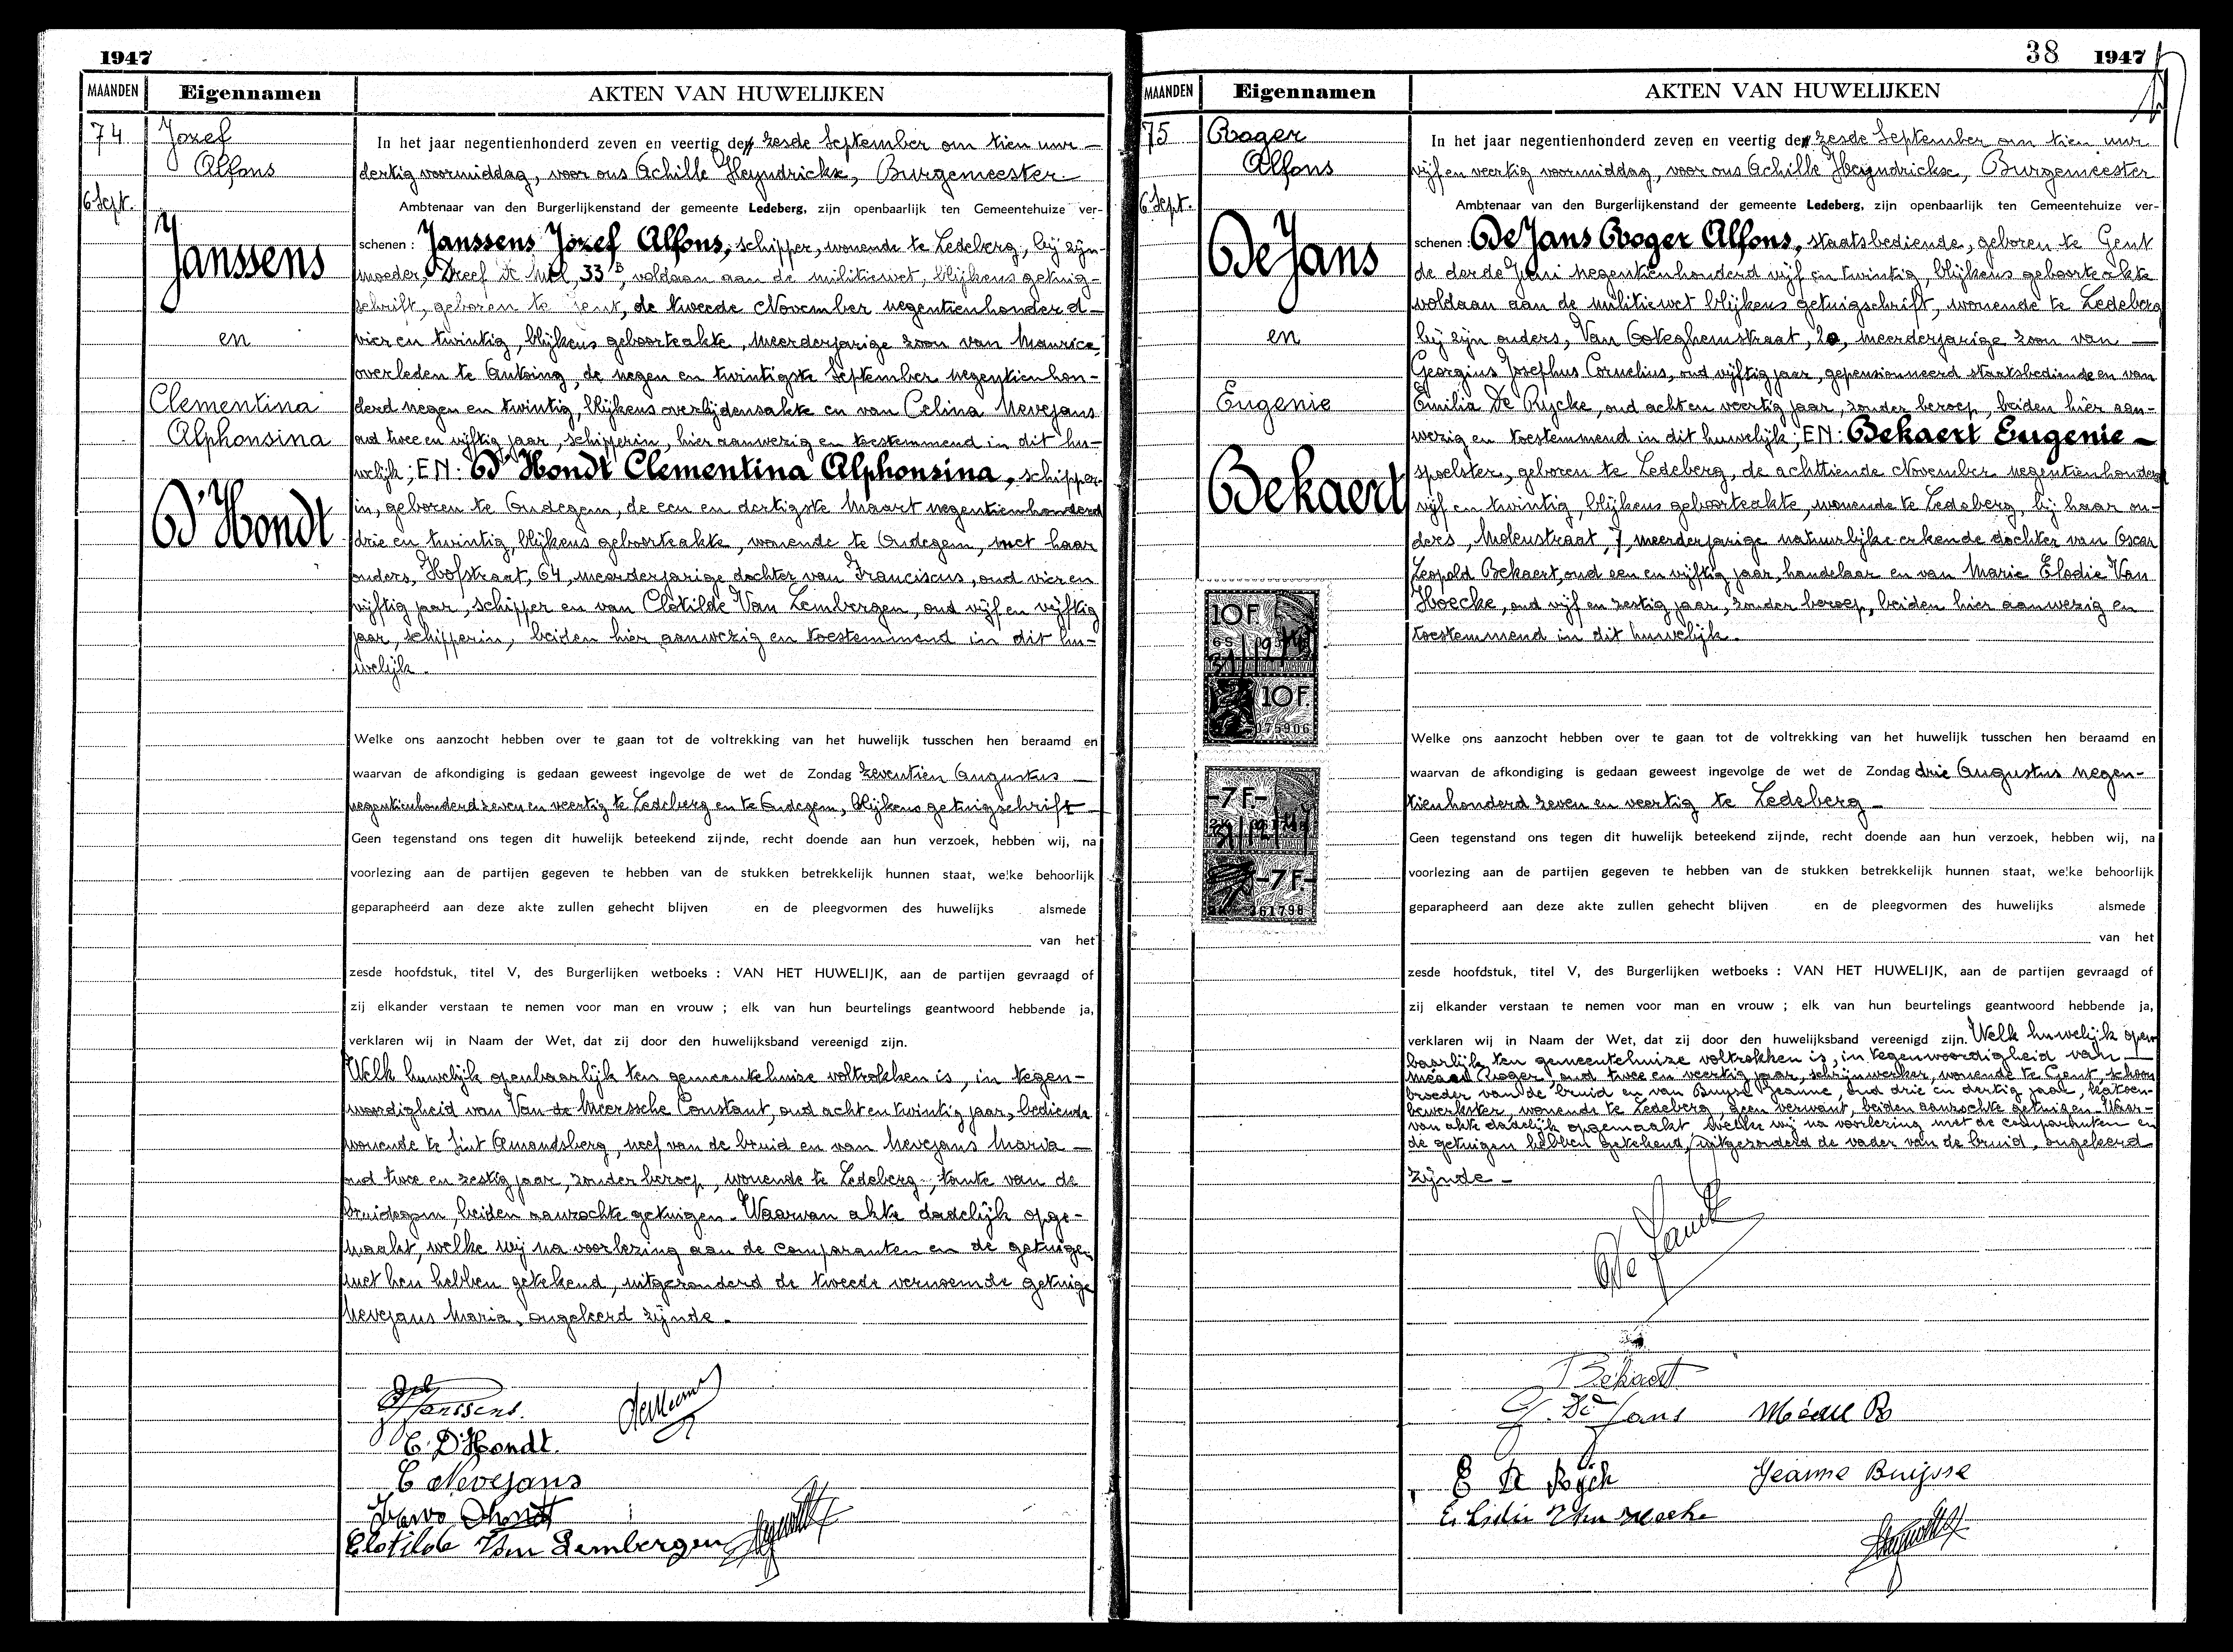 1947
MAANDEN
Eigennamen
AKTEN VAN HUWELIJKEN
74
6 Sept.
Jozef
Alfons
Janssens
en
Clementina
Alphonsina
D'Hondt
In het jaar negentienhonderd zeven en veertig den zesde September om tien uur —
dertig voormiddag, voor ons Achille Heyndrickx, Burgemeester —
Ambtenaar van den Burgerlijkenstand der gemeente Ledeberg, zijn openbaarlijk ten Gemeentehuize ver-
schenen : Janssens Jozef Alfons, schipper, wonende te Ledeberg, bij zijn
moeder, Dreef 33B, voldaan aan de militiewet, blijkens getuig-
schrift, geboren te Gent, de tweede November negentienhonderd —
vier en twintig, blijkens geboorteakte, meerderjarige zoon van Maurice,
overleden te Antoing, de negen en twintigste September negentienhon-
derd negen en twintig, blijkens overlijdensakte en van Celina Nevejans
oud twee en vijftig jaar, schipperin, hier aanwezig en toestemmend in dit hu-
welijk; EN: D'Hondt Clementina Alphonsina, schipper-
in, geboren te Oudegem, de een en dertigste Maart negentienhonderd
drie en twintig, blijkens geboorteakte, wonende te Oudegem, met haar
ouders, Hofstraat, 64, meerderjarige dochter van Franciscus, oud vier en
vijftig jaar, schipper en van Clotilde Van Lembergen, oud vijf en vijftig
jaar, schipperin, beiden hier aanwezig en toestemmend in dit hu-
welijk.
Welke ons aanzocht hebben over te gaan tot de voltrekking van het huwelijk tusschen hen beraamd en
waarvan de afkondiging is gedaan geweest ingevolge de wet de Zondag zeventien Augustus —
negentienhonderd zeven en veertig te Ledeberg en te Oudegem, blijkens getuigschrift —
Geen tegenstand ons tegen dit huwelijk beteekend zijnde, recht doende aan hun verzoek, hebben wij, na
voorlezing aan de partijen gegeven te hebben van de stukken betrekkelijk hunnen staat, welke behoorlijk
geparapheerd aan deze akte zullen gehecht blijven en de pleegvormen des huwelijks alsmede
van het
zesde hoofdstuk, titel V, des Burgerlijken wetboeks : VAN HET HUWELIJK, aan de partijen gevraagd of
zij elkander verstaan te nemen voor man en vrouw ; elk van hun beurtelings geantwoord hebbende ja,
verklaren wij in Naam der Wet, dat zij door den huwelijksband vereenigd zijn.
Welk huwelijk openbaarlijk ten gemeentehuize voltrokken is, in tegen-
woordigheid van Van de Meerssche Constant, oud acht en twintig jaar, bediende
wonende te Sint Amandsberg, neef van de bruid en van Nevejans Maria —
oud twee en zestig jaar, zonder beroep, wonende te Ledeberg, tante van de
bruidegom, beiden aanzochte getuigen. Waarvan akte dadelijk opge-
maakt, welke wij na voorlezing aan de comparanten en de getuigen
met hen hebben getekend, uitgezonderd de tweede vernoemde getuige
Nevejans Maria, ongeleerd zijnde.
Janssens.
C. D'Hondt.
C Nevejans
Clotilde Van Lembergen
38 1947
MAANDEN
Eigennamen
AKTEN VAN HUWELIJKEN
75
6 Sept.
Roger
Alfons
De Jans
en
Eugenie
Bekaert
In het jaar negentienhonderd zeven en veertig den zesde September om tien uur
vijf en veertig voormiddag, voor ons Achille Heyndrickx, Burgemeester
Ambtenaar van den Burgerlijkenstand der gemeente Ledeberg, zijn openbaarlijk ten Gemeentehuize ver-
schenen : De Jans Roger Alfons, staatsbediende, geboren te Gent
de derde Juni negentienhonderd vijf en twintig, blijkens geboorteakte
voldaan aan de militiewet blijkens getuigschrift, wonende te Ledeberg
bij zijn ouders, Van Ooteghemstraat, 20, meerderjarige zoon van —
Georgius Josephus Cornelius, oud vijftig jaar, gepensionneerd staatsbediende en van
Emilia De Rycke, oud acht en veertig jaar, zonder beroep, beiden hier aan-
wezig en toestemmend in dit huwelijk; EN: Bekaert Eugenie —
spoelster, geboren te Ledeberg, de achttiende November negentienhonderd
vijf en twintig, blijkens geboorteakte, wonende te Ledeberg, bij haar ou-
ders, Molenstraat, 7, meerderjarige natuurlijke erkende dochter van Oscar
Leopold Bekaert, oud een en vijftig jaar, handelaar en van Marie Elodie Van
Hoecke, oud vijf en zestig jaar, zonder beroep, beiden hier aanwezig en
toestemmend in dit huwelijk.
10F.
10F.
075906
-7F-
-7F-
361798
Welke ons aanzocht hebben over te gaan tot de voltrekking van het huwelijk tusschen hen beraamd en
waarvan de afkondiging is gedaan geweest ingevolge de wet de Zondag drie Augustus negen-
tienhonderd zeven en veertig te Ledeberg —
Geen tegenstand ons tegen dit huwelijk beteekend zijnde, recht doende aan hun verzoek, hebben wij, na
voorlezing aan de partijen gegeven te hebben van de stukken betrekkelijk hunnen staat, welke behoorlijk
geparapheerd aan deze akte zullen gehecht blijven en de pleegvormen des huwelijks alsmede
van het
zesde hoofdstuk, titel V, des Burgerlijken wetboeks : VAN HET HUWELIJK, aan de partijen gevraagd of
zij elkander verstaan te nemen voor man en vrouw ; elk van hun beurtelings geantwoord hebbende ja,
verklaren wij in Naam der Wet, dat zij door den huwelijksband vereenigd zijn. Welk huwelijk open-
baarlijk ten gemeentehuize voltrokken is, in tegenwoordigheid van —
Roger, oud twee en veertig jaar, schrijnwerker, wonende te Gent, schoon
broeder van de bruid en van Buijse Jeanne, oud drie en dertig jaar, katoen-
bewerkster, wonende te Ledeberg, geen verwant, beiden aanzochte getuigen. Waar-
van akte dadelijk opgemaakt welke wij na voorlezing met de comparanten en
de getuigen hebben getekend, uitgezonderd de vader van de bruid, ongeleerd
zijnde —
Bekaert
G. De Jans
Jeanne Buijsse